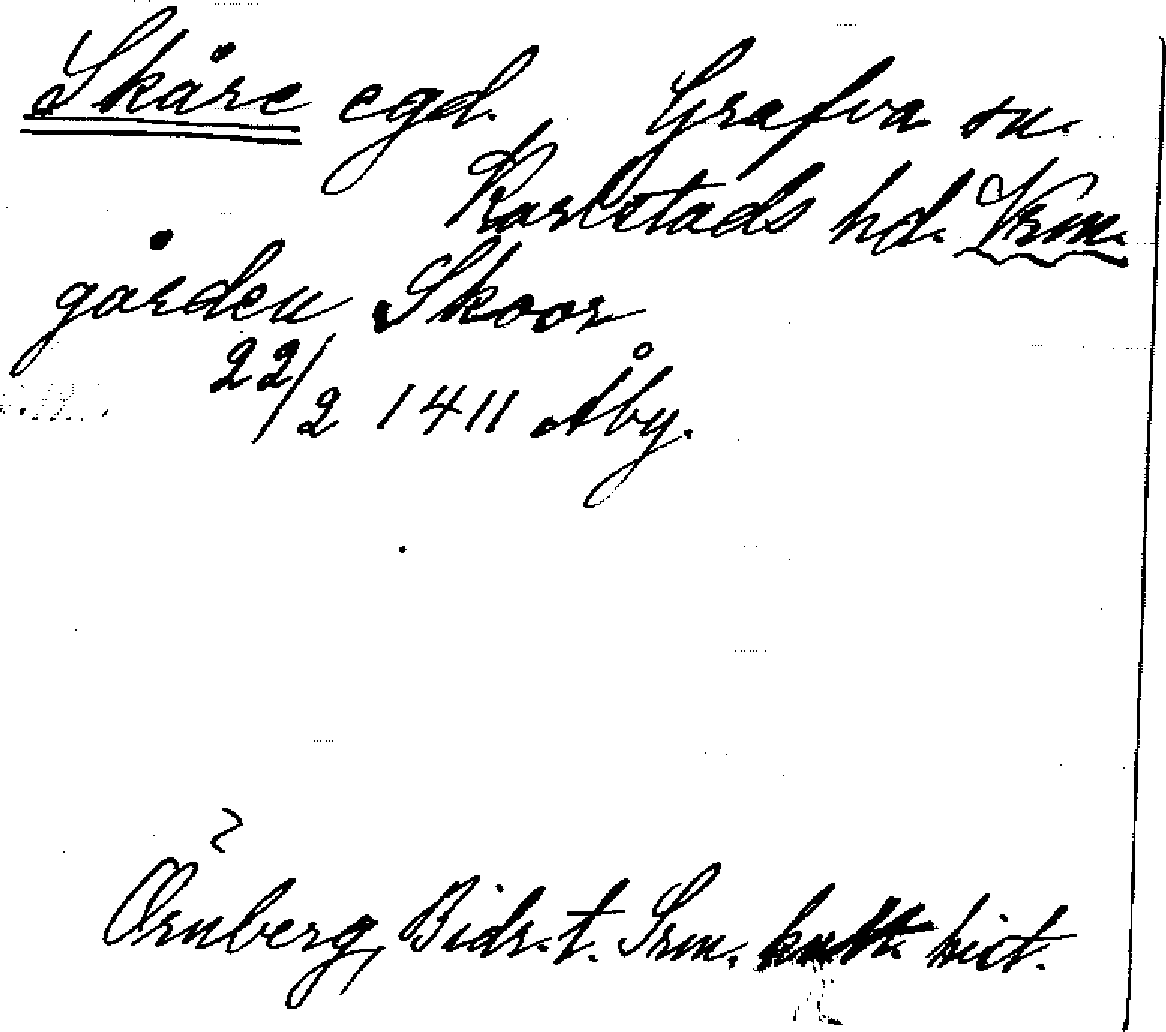 Skåre egd. Grafva sn.
Karlstads hd. Vrm.
gården Skoor
22/2 1411 Åby.
Örnberg, Bidr. t. Srm. kult. hist.